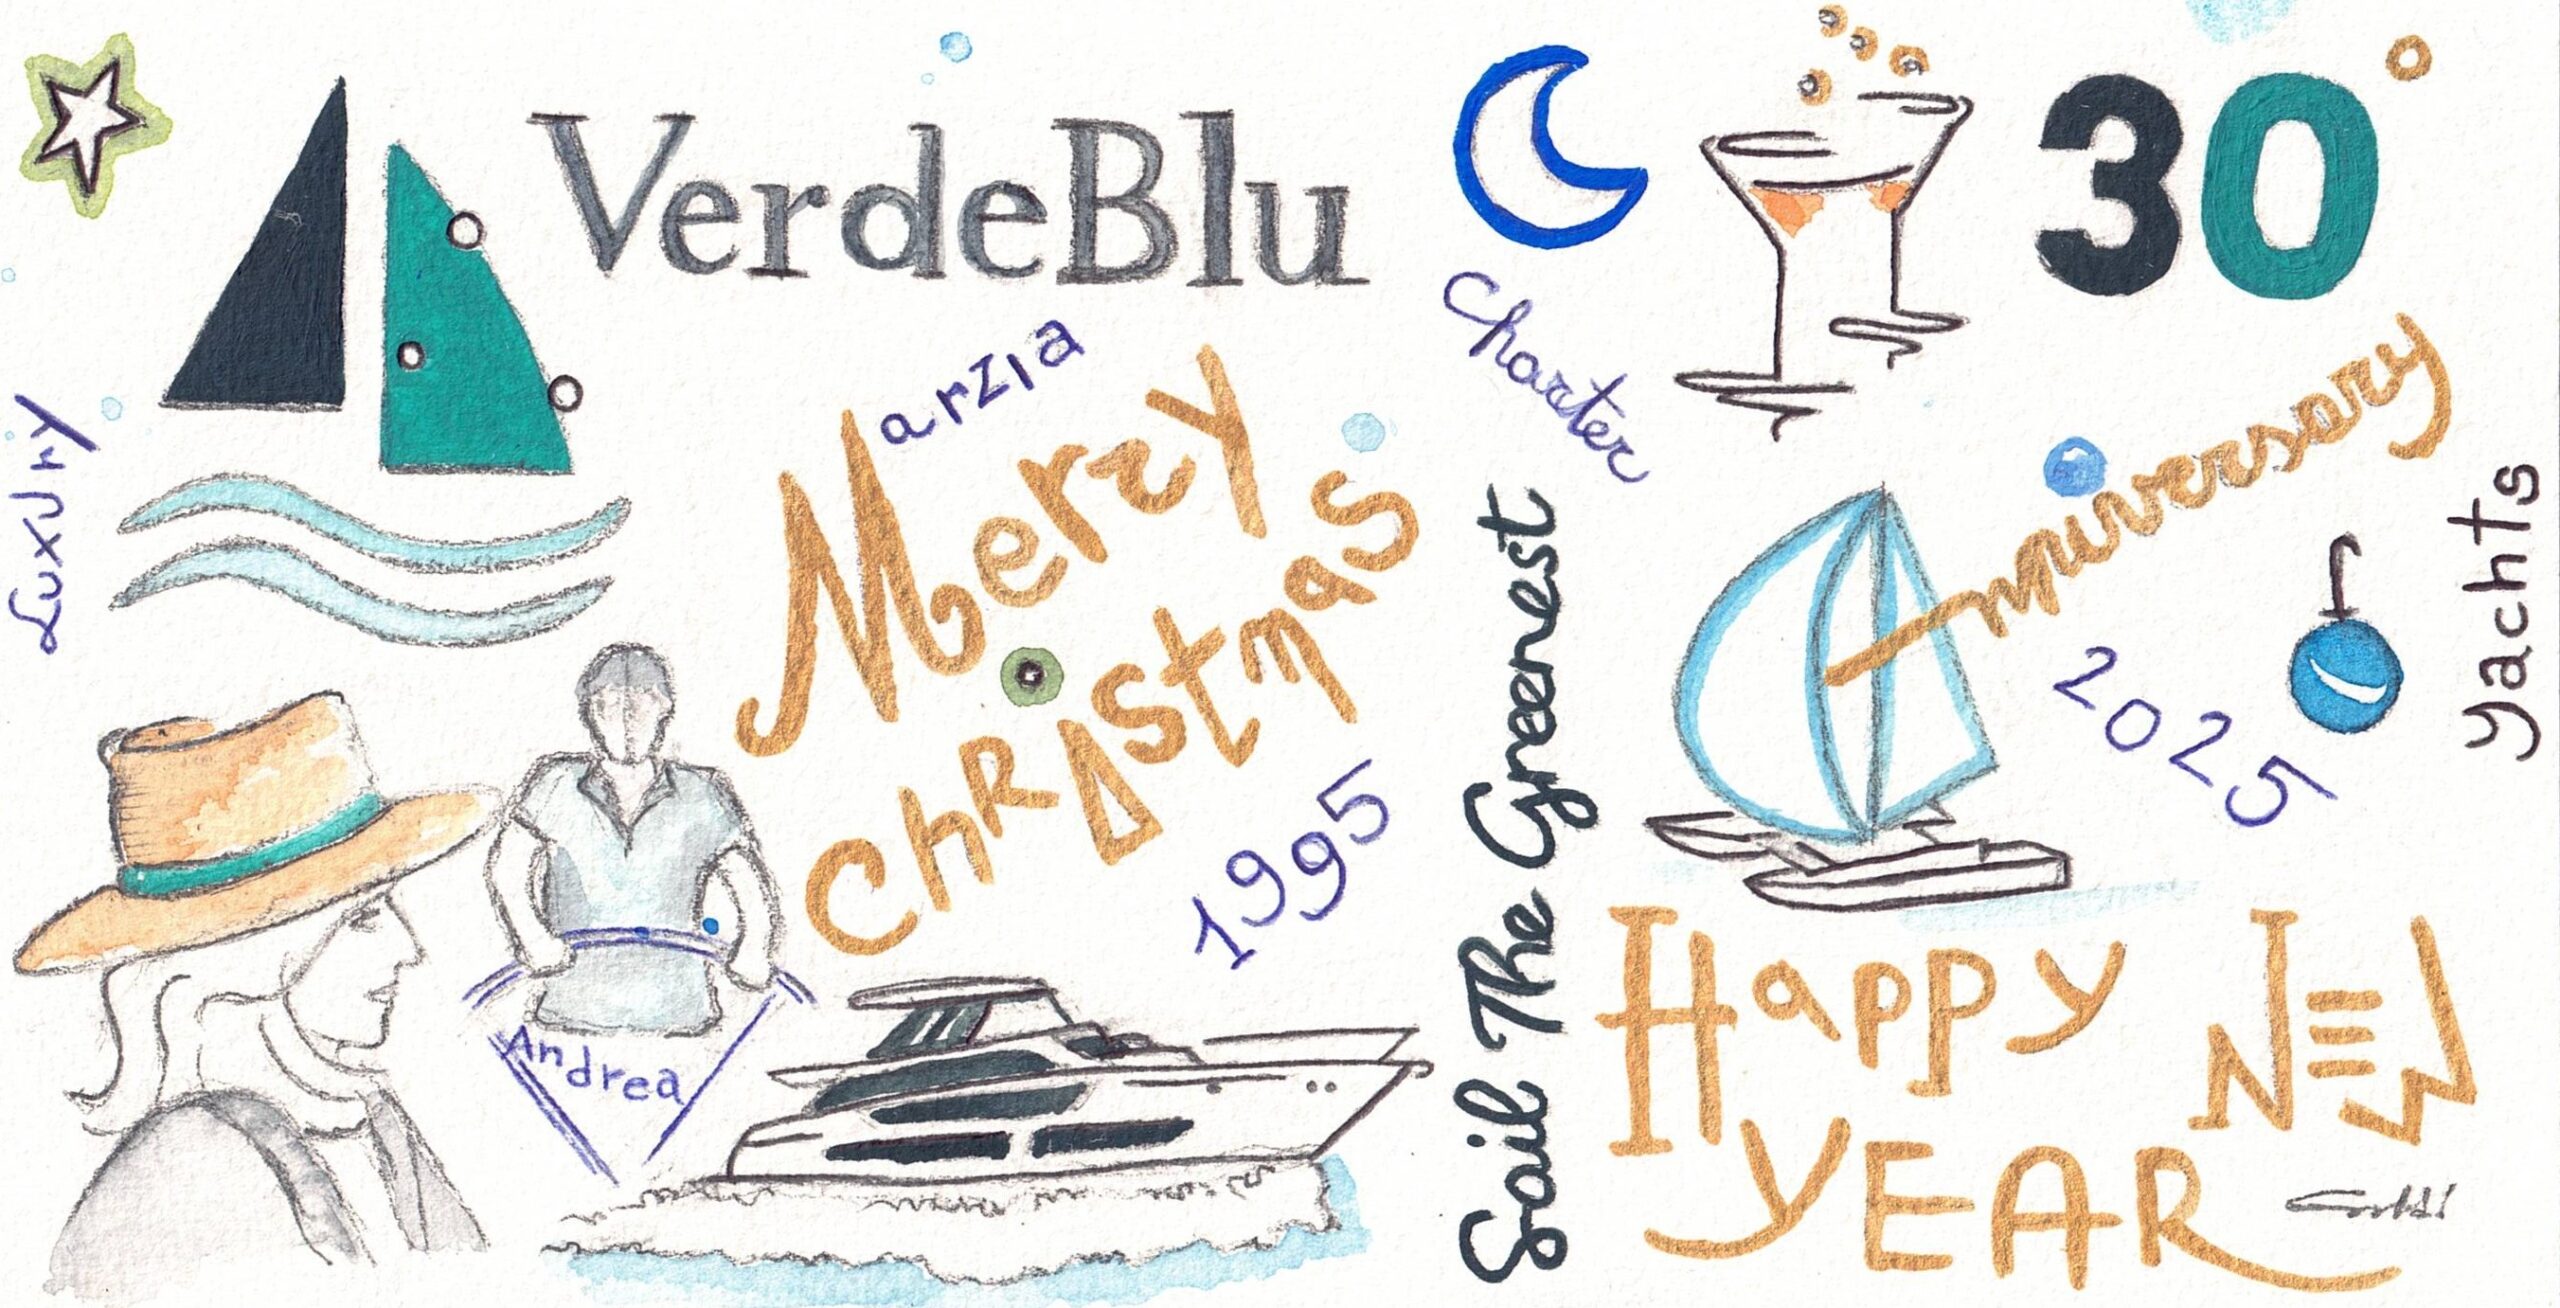 VerdeBlu
30
Charter
arzia
Luxury
Merry
Christmas
Anniversary
yachts
1995
2025
Sail The Greenest
Andrea
Happy NEW
YEAR